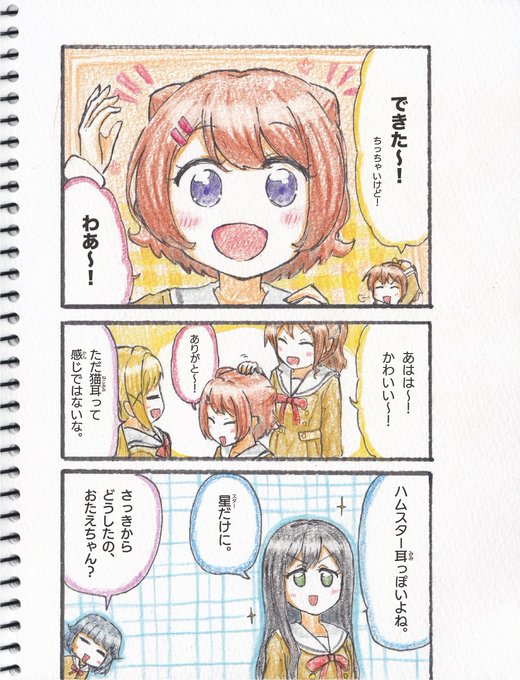 できた～！
ちっちゃいけど！
わあ～！
あはは～！
かわいい～！
ありがと～！
ただ猫耳って
感じではないな。
ハムスター耳っぽいよね。
星だけに。
さっきから
どうしたの、
おたえちゃん？